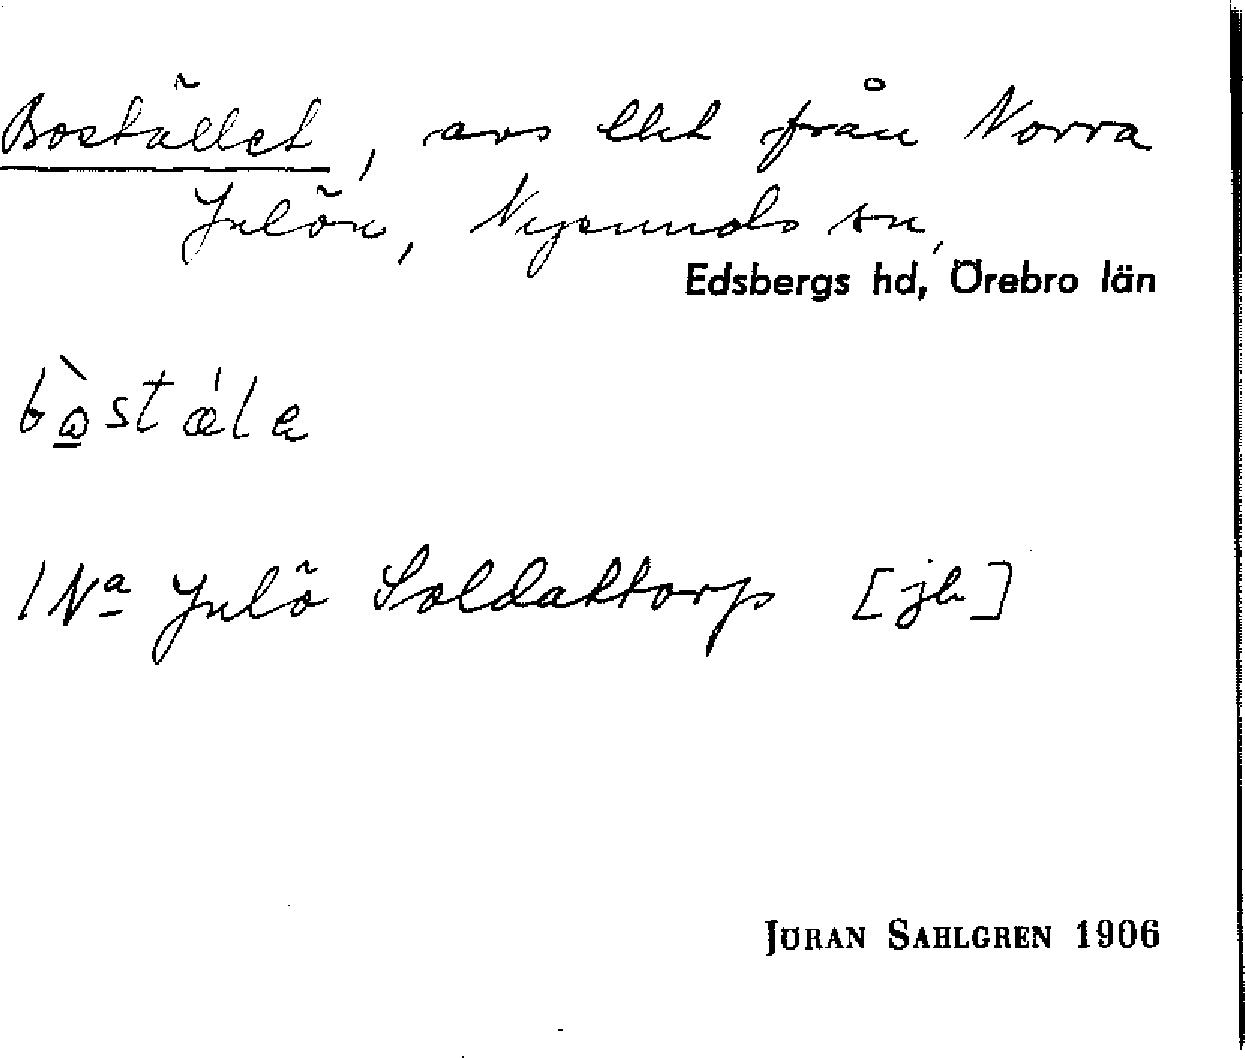 Bostället, avs lht från Norra
Julön, Nysunds sn,
Edsbergs hd, Örebro län
bò̲stǽla
1 Nª Julö Soldattorp [jb]
JÖRAN SAHLGREN 1906